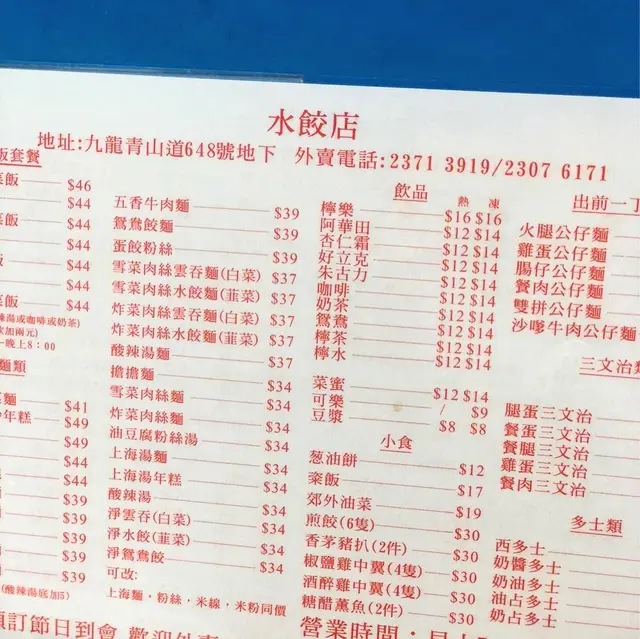 水餃店
地址:九龍青山道648號地下 外賣電話:2371 3919/2307 6171
飯套餐
菜飯 $46
$44
飯 $44
飯 $44
$44
菜飯 $44
辣湯或咖啡或奶茶)
加兩元)
晚上8:00
麵類
麵 $41
年糕 $49
$49
$44
$44
$39
$39
$39
$39
(酸辣湯底加5)
五香牛肉麵 $39
鴛鴦餃麵 $39
蛋餃粉絲 $39
雪菜肉絲雲吞麵(白菜) $37
雪菜肉絲水餃麵(韮菜) $37
炸菜肉絲雲吞麵(白菜) $37
炸菜肉絲水餃麵(韮菜) $37
酸辣湯麵 $37
擔擔麵 $34
雪菜肉絲麵 $34
炸菜肉絲麵 $34
油豆腐粉絲湯 $34
上海湯麵 $34
上海湯年糕 $34
酸辣湯 $34
淨雲吞(白菜) $34
淨水餃(韮菜) $34
淨鴛鴦餃 $34
可改:
上海麵·粉絲·米線·米粉同價
飲品
熱 凍
檸樂 $16 $16
阿華田 $12 $14
杏仁霜 $12 $14
好立克 $12 $14
朱古力 $12 $14
咖啡 $12 $14
奶茶 $12 $14
鴛鴦 $12 $14
檸茶 $12 $14
檸水 $12 $14
菜蜜 $12 $14
可樂 / $9
豆漿 $8 $8
小食
葱油餅 $12
粢飯 $17
郊外油菜 $19
煎餃(6隻) $30
香茅豬扒(2件) $30
椒鹽雞中翼(4隻) $30
酒醉雞中翼(4隻) $30
糖醋薰魚(2件) $30
出前一丁
火腿公仔麵
雞蛋公仔麵
腸仔公仔麵
餐肉公仔麵
雙拼公仔麵
沙嗲牛肉公仔麵
三文治類
腿蛋三文治
餐蛋三文治
餐腿三文治
雞蛋三文治
餐肉三文治
多士類
西多士
奶醬多士
奶油多士
油占多士
奶占多士
預訂節日到會 歡迎外賣
營業時間:星